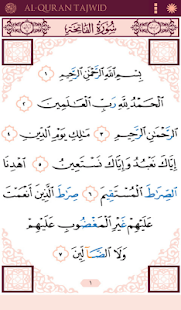 AL-QURAN TAJWID
سُورَةُ الفَاتِحَة
بِسْمِ ٱللَّهِ ٱلرَّحْمَٰنِ ٱلرَّحِيمِ ١
ٱلْحَمْدُ لِلَّهِ رَبِّ ٱلْعَٰلَمِينَ ٢
ٱلرَّحْمَٰنِ ٱلرَّحِيمِ ٣ مَٰلِكِ يَوْمِ ٱلدِّينِ ٤
إِيَّاكَ نَعْبُدُ وَإِيَّاكَ نَسْتَعِينُ ٥ ٱهْدِنَا
ٱلصِّرَٰطَ ٱلْمُسْتَقِيمَ ٦ صِرَٰطَ ٱلَّذِينَ أَنْعَمْتَ
عَلَيْهِمْ غَيْرِ ٱلْمَغْضُوبِ عَلَيْهِمْ
وَلَا ٱلضَّآلِّينَ ٧
١